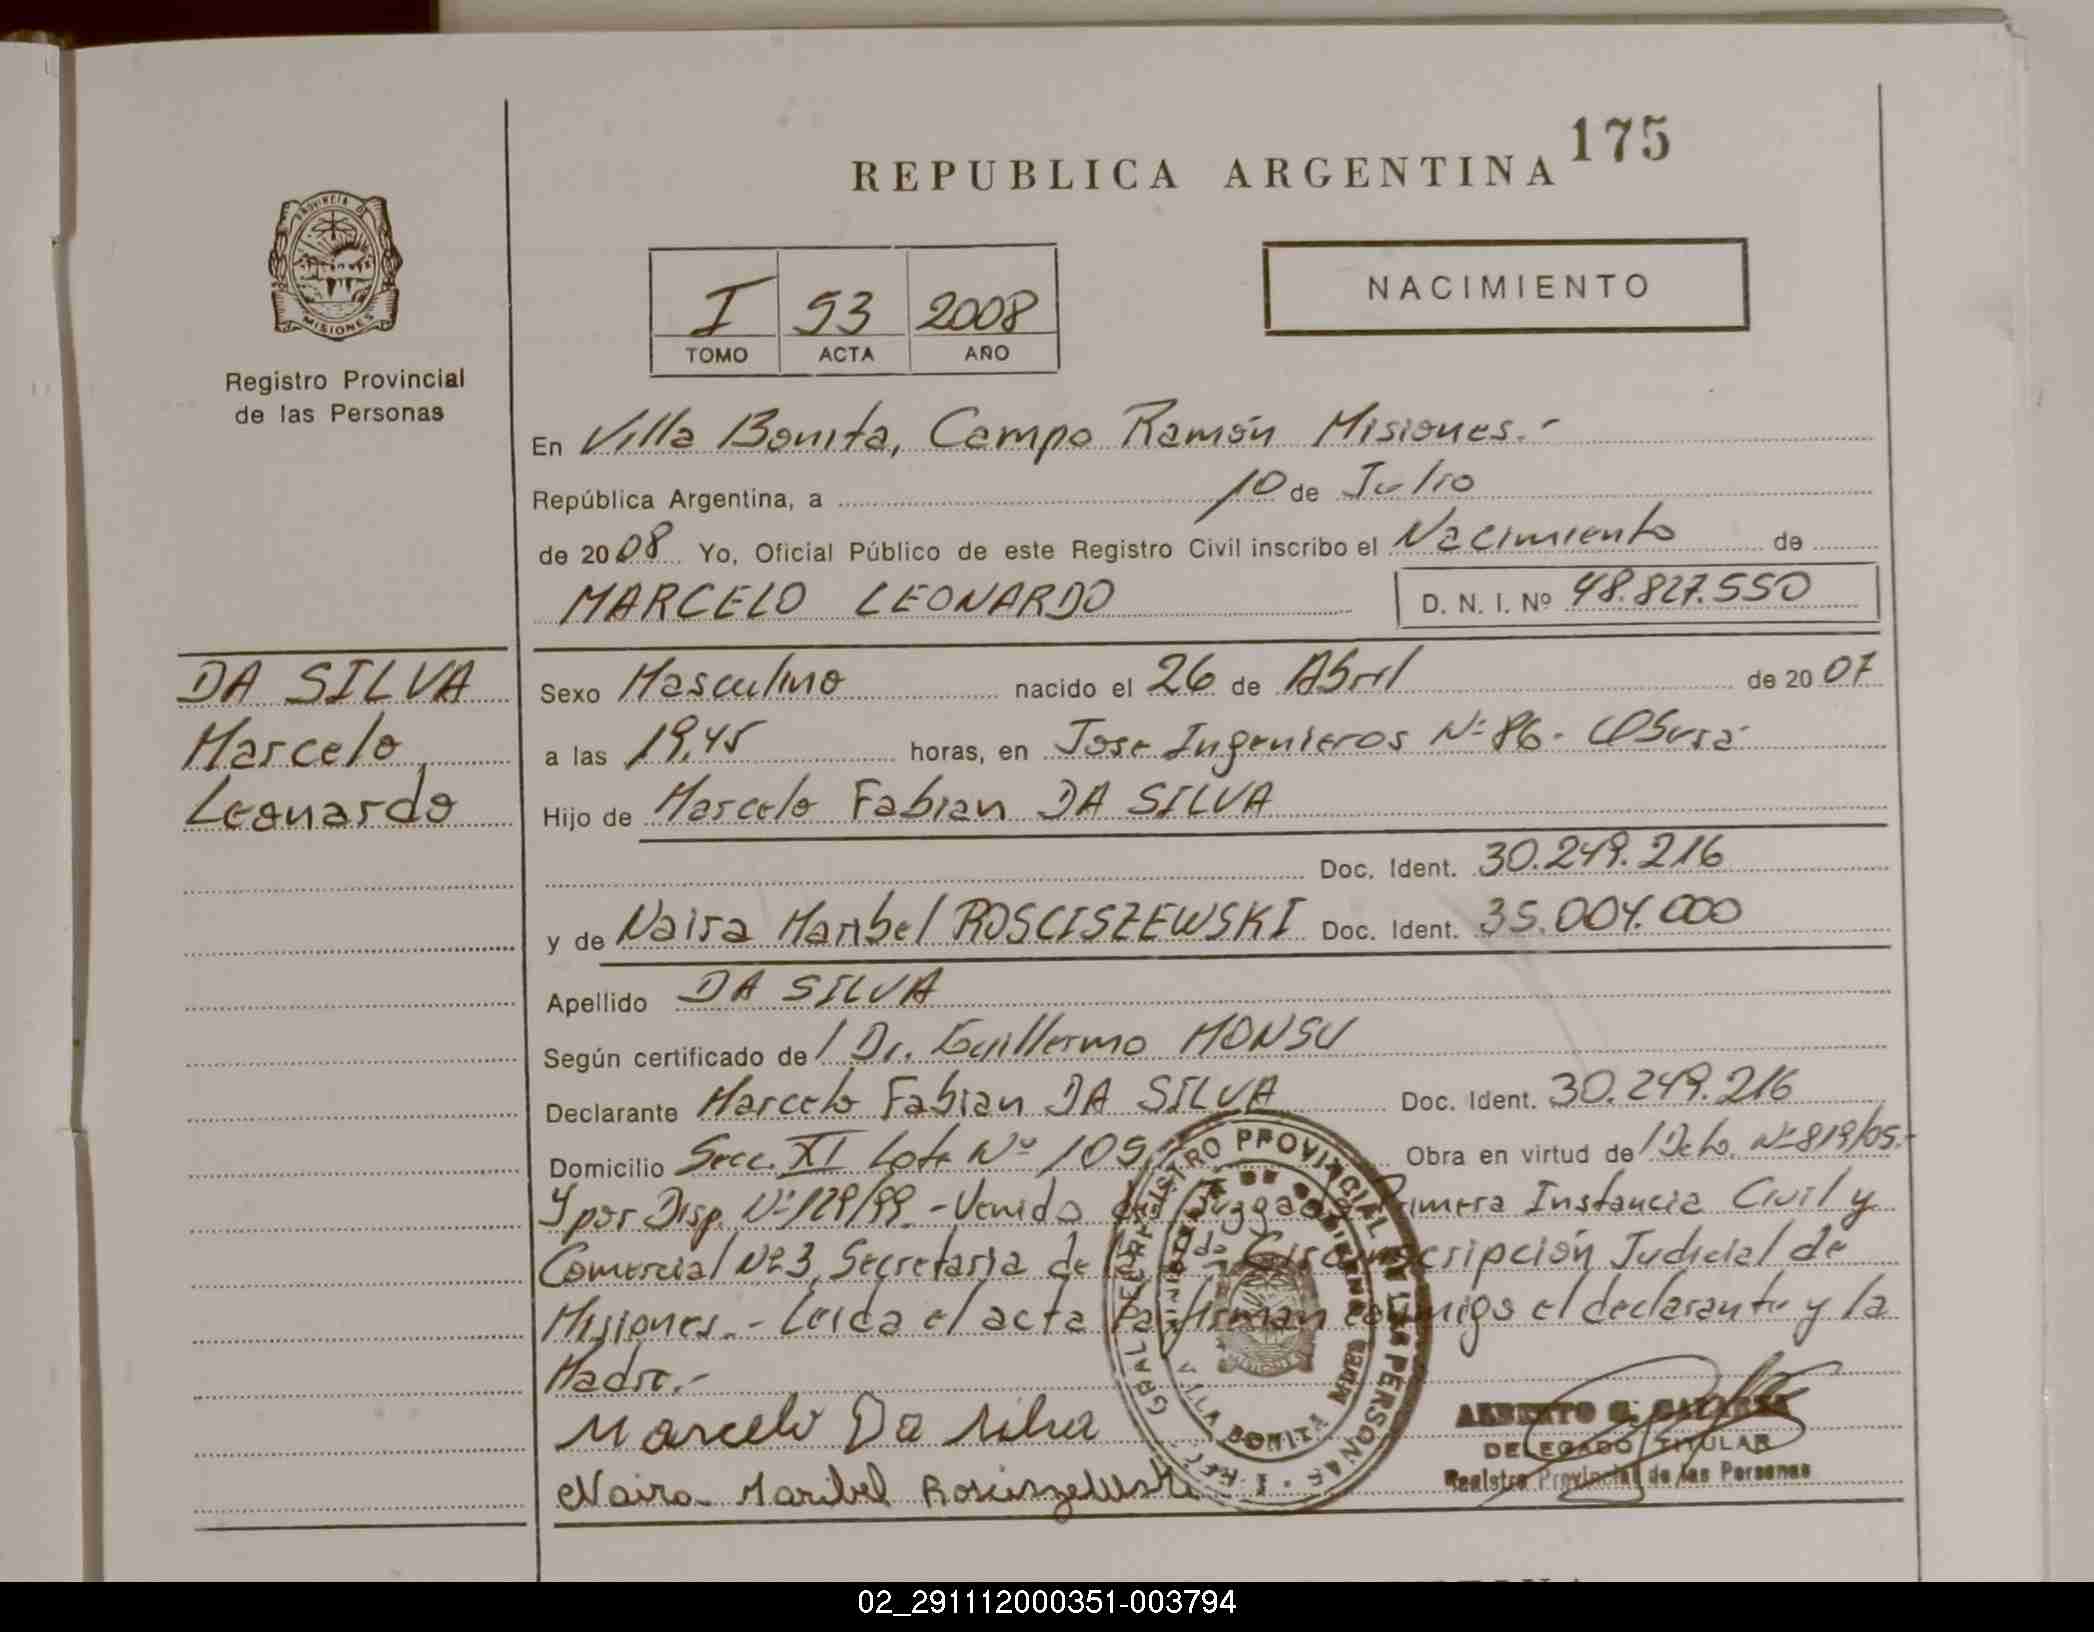 REPUBLICA ARGENTINA 175
PROVINCIA DE
MISIONES
Registro Provincial
de las Personas
I 53 2008
TOMO ACTA AÑO
NACIMIENTO
En Villa Bonita, Campo Ramón Misiones.-
República Argentina, a 10 de Julio
de 2008 Yo, Oficial Público de este Registro Civil inscribo el Nacimiento de
MARCELO LEONARDO D. N. I. Nº 48.827.550
DA SILVA
Marcelo
Leonardo
Sexo Masculino nacido el 26 de Abril de 2007
a las 19,45 horas, en Jose Ingenieros Nº 86.
Hijo de Marcelo Fabian DA SILVA
Doc. Ident. 30.249.216
y de Naira Maribel ROSCISZEWSKI Doc. Ident. 35.004.000
Apellido DA SILVA
Según certificado de / Dr. Guillermo MONSU
Declarante Marcelo Fabian DA SILVA Doc. Ident. 30.249.216
Domicilio Secc. XI Lote Nº 109 Obra en virtud de / Dcto. Nº 819/05.-
Y por Disp. Nº 129/99.- Venido del Juzgado Primera Instancia Civil y
Comercial Nº 3, Secretaria de la Circunscripción Judicial de
Misiones.- Leida el acta la firman conmigo el declarante y la
Madre.-
Marcelo Da Silva
Naira Maribel Rosciszewski
REGISTRO PROVINCIAL DE LAS PERSONAS
VILLA BONITA
ALBERTO
DELEGADO TITULAR
Registro Provincial de las Personas
02_291112000351-003794